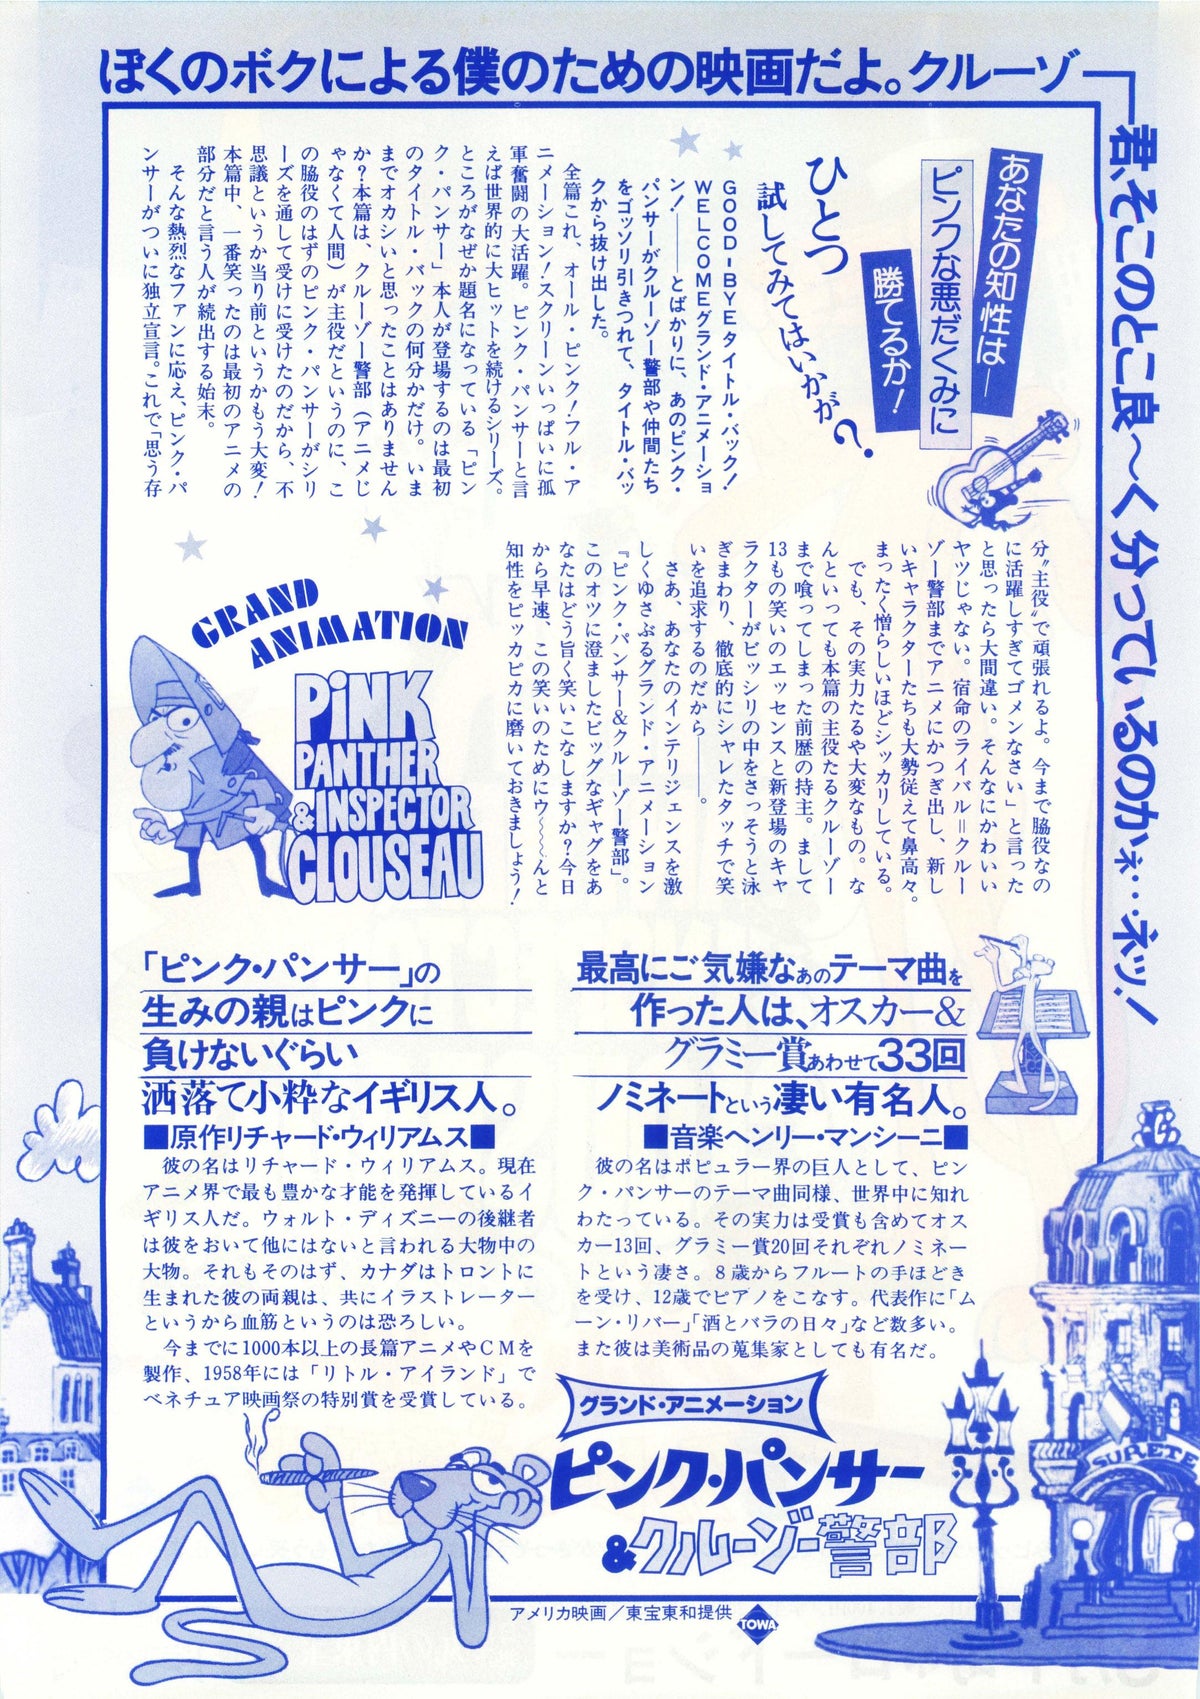 ぼくのボクによる僕のための映画だよ。クルーゾ
君、そこのとこ良〜く分っているのかネ…ネッ！
あなたの知性は―
ピンクな悪だくみに
勝てるか！
ひとつ
試してみてはいかが？
GOOD-BYEタイトル・バック！
WELCOMEグランド・アニメーショ
ン！――とばかりに、あのピンク・
パンサーがクルーゾー警部や仲間たち
をゴッソリ引きつれて、タイトル・バッ
クから抜け出した。
全篇これ、オール・ピンク！フル・ア
ニメーション！スクリーンいっぱいに孤
軍奮闘の大活躍。ピンク・パンサーと言
えば世界的に大ヒットを続けるシリーズ。
ところがなぜか題名になっている「ピン
ク・パンサー」本人が登場するのは最初
のタイトル・バックの何分かだけ。いま
までオカシいと思ったことはありません
か？本篇は、クルーゾー警部（アニメじ
ゃなくて人間）が主役だというのに、こ
の脇役のはずのピンク・パンサーがシリ
ーズを通して受けに受けたのだから、不
思議というか当り前というかもう大変！
本篇中、一番笑ったのは最初のアニメの
部分だと言う人が続出する始末。
そんな熱烈なファンに応え、ピンク・パ
ンサーがついに独立宣言。これで「思う存
分〝主役〟で頑張れるよ。今まで脇役なの
に活躍しすぎてゴメンなさい」と言った
と思ったら大間違い。そんなにかわいい
ヤツじゃない。宿命のライバル＝クルー
ゾー警部までアニメにかつぎ出し、新し
いキャラクターたちも大勢従えて鼻高々。
まったく憎らしいほどシッカリしている。
でも、その実力たるや大変なもの。な
んといっても本篇の主役たるクルーゾー
まで喰ってしまった前歴の持主。まして
13もの笑いのエッセンスと新登場のキャ
ラクターがビッシリの中をさっそうと泳
ぎまわり、徹底的にシャレたタッチで笑
いを追求するのだから――。
さあ、あなたのインテリジェンスを激
しくゆさぶるグランド・アニメーション
『ピンク・パンサー&クルーゾー警部』。
このオツに澄ましたビッグなギャグをあ
なたはどう旨く笑いこなしますか？今日
から早速、この笑いのためにウ〜〜んと
知性をピッカピカに磨いておきましょう！
GRAND
ANIMATION
PiNK
PANTHER
&INSPECTOR
CLOUSEAU
「ピンク・パンサー」の
生みの親はピンクに
負けないぐらい
洒落て小粋なイギリス人。
■原作リチャード・ウィリアムス■
彼の名はリチャード・ウィリアムス。現在
アニメ界で最も豊かな才能を発揮しているイ
ギリス人だ。ウォルト・ディズニーの後継者
は彼をおいて他にはないと言われる大物中の
大物。それもそのはず、カナダはトロントに
生まれた彼の両親は、共にイラストレーター
というから血筋というのは恐ろしい。
今までに1000本以上の長篇アニメやCMを
製作、1958年には「リトル・アイランド」で
ベネチュア映画祭の特別賞を受賞している。
最高にご気嫌なあのテーマ曲を
作った人は、オスカー&
グラミー賞あわせて33回
ノミネートという凄い有名人。
■音楽ヘンリー・マンシーニ■
彼の名はポピュラー界の巨人として、ピン
ク・パンサーのテーマ曲同様、世界中に知れ
わたっている。その実力は受賞も含めてオス
カー13回、グラミー賞20回それぞれノミネー
トという凄さ。8歳からフルートの手ほどき
を受け、12歳でピアノをこなす。代表作に「ム
ーン・リバー」「酒とバラの日々」など数多い。
また彼は美術品の蒐集家としても有名だ。
グランド・アニメーション
ピンク・パンサー
&クルーゾー警部
SURETE
アメリカ映画／東宝東和提供
TOWA